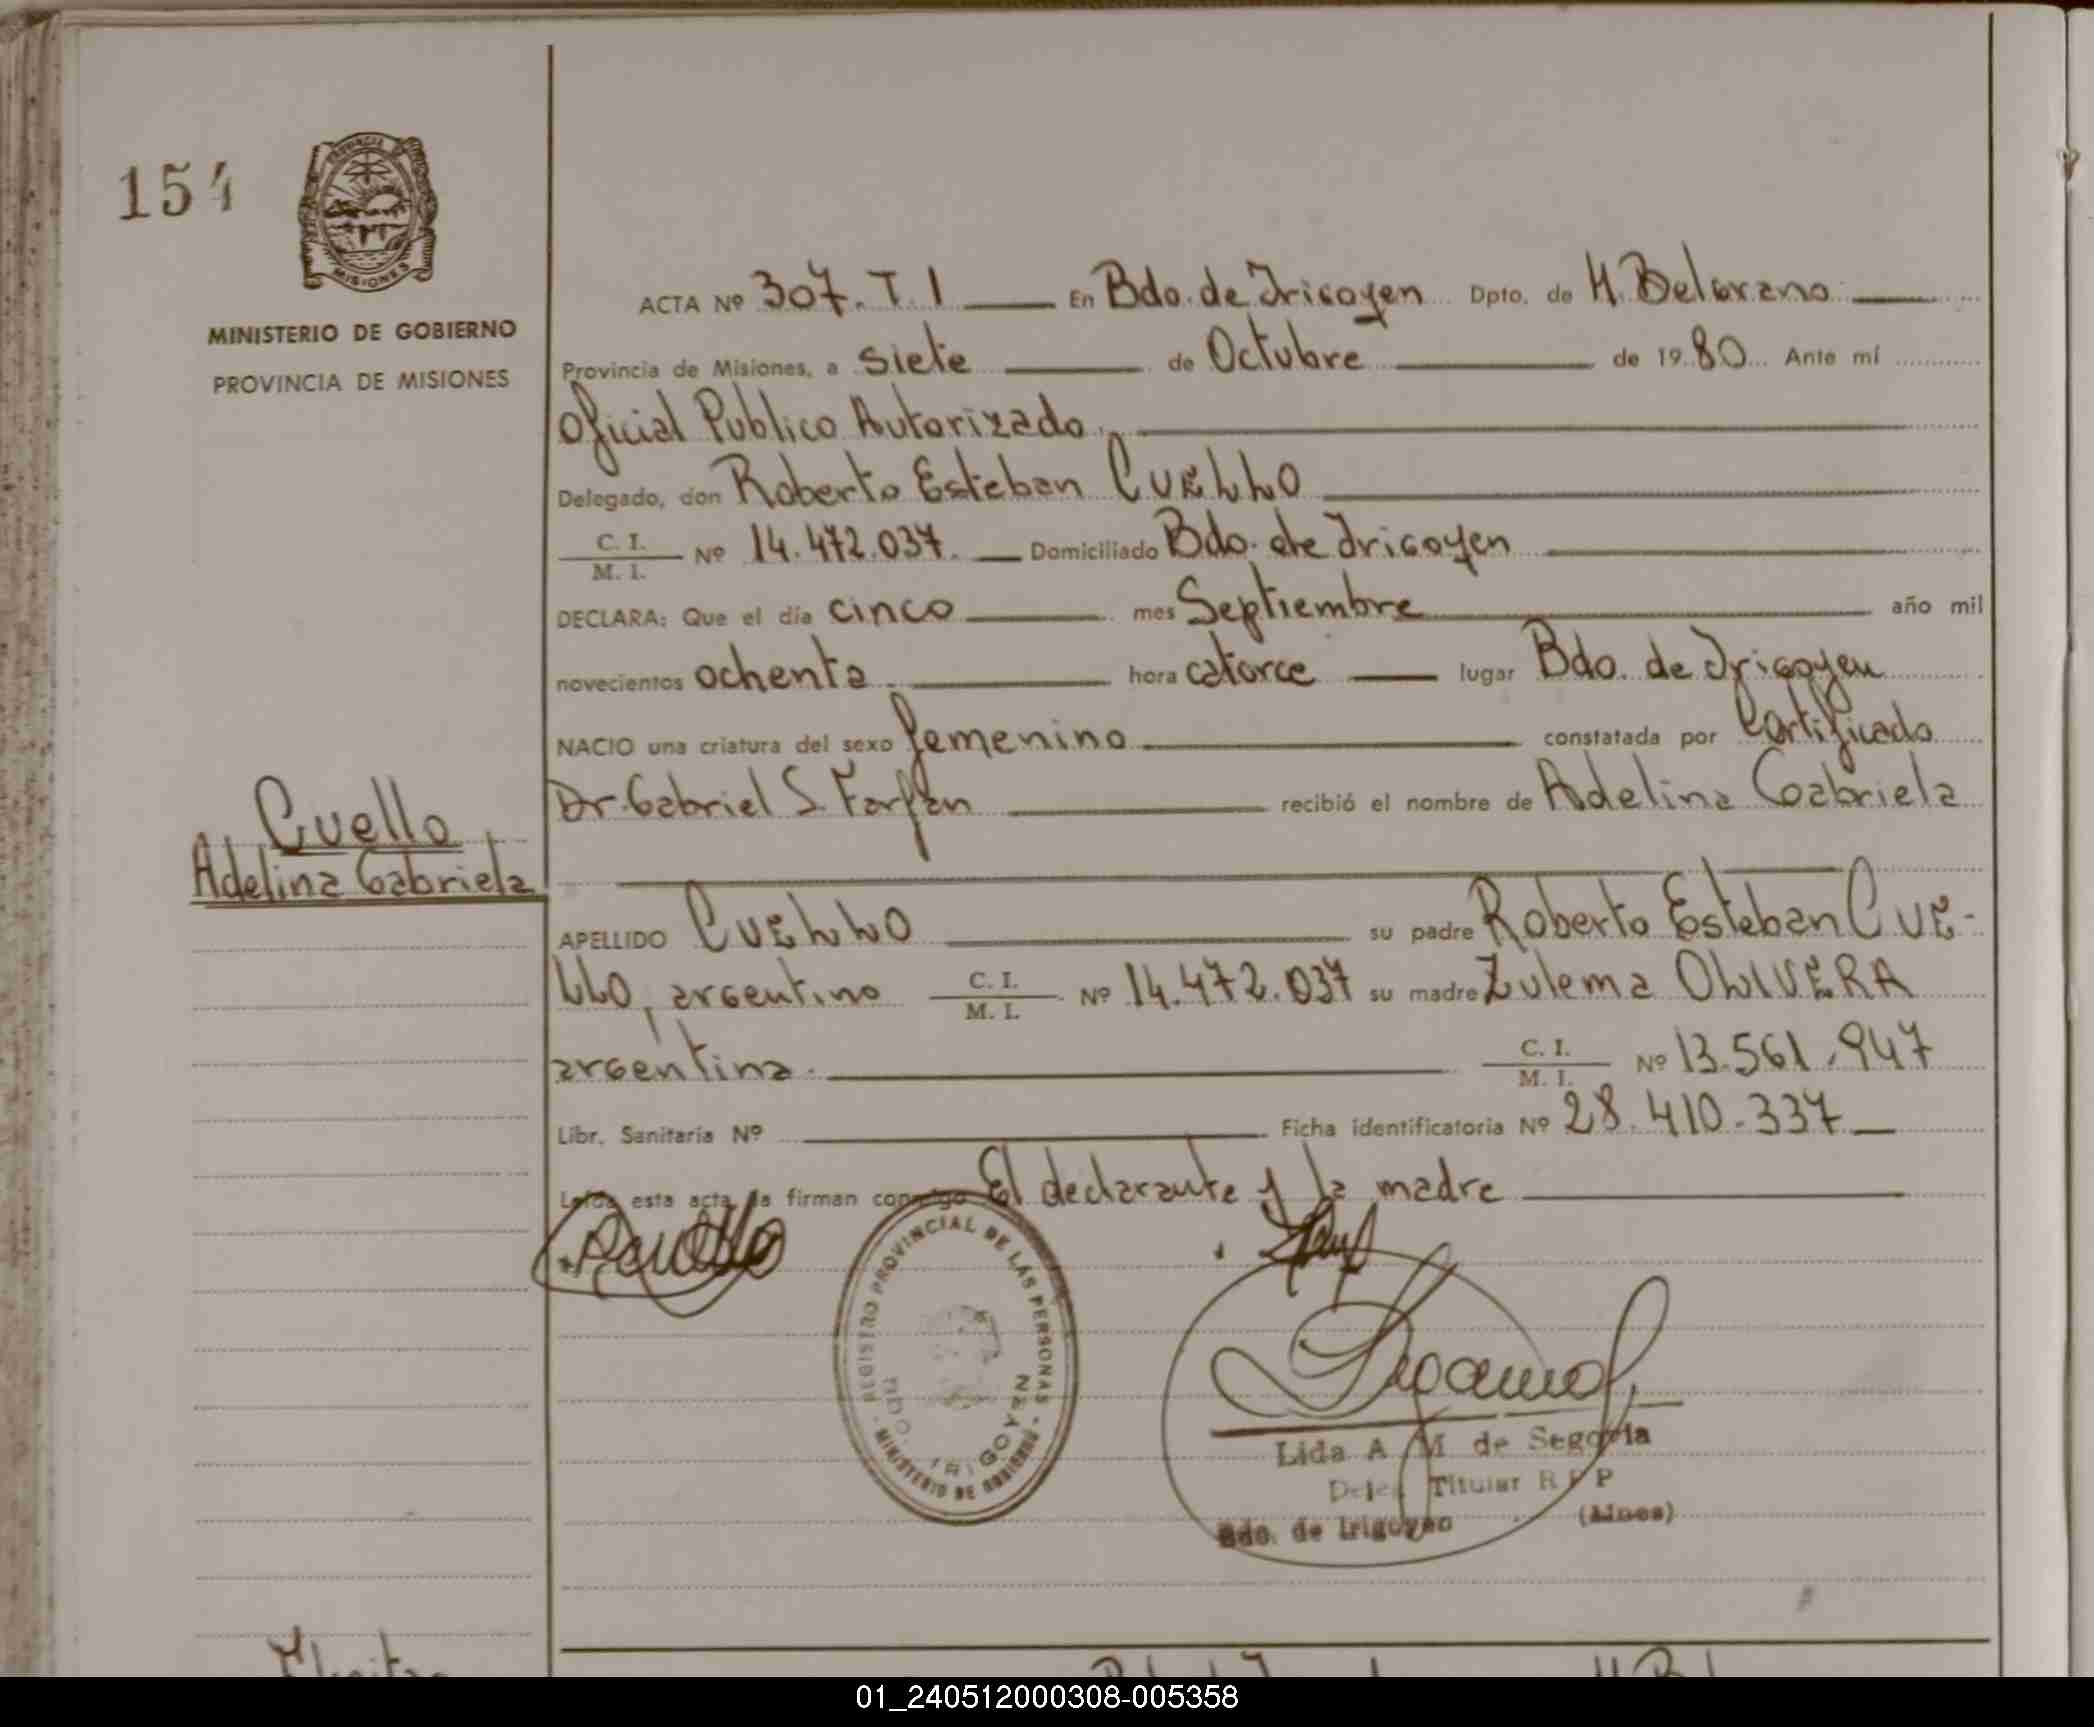 154
PROVINCIA DE
MISIONES
MINISTERIO DE GOBIERNO
PROVINCIA DE MISIONES
ACTA Nº 307. T. I En Bdo. de Irigoyen Dpto. de M. Belgrano
Provincia de Misiones, a siete de Octubre de 1980 Ante mí
Oficial Publico Autorizado.
Delegado, don Roberto Esteban CUELLO
C. I. / M. I. Nº 14.472.037. Domiciliado Bdo. de Irigoyen
DECLARA: Que el día cinco mes Septiembre año mil
novecientos ochenta hora catorce lugar Bdo. de Irigoyen
NACIO una criatura del sexo femenino constatada por Certificado
Dr. Gabriel S. Farfan recibió el nombre de Adelina Gabriela
Cuello
Adelina Gabriela
APELLIDO CUELLO su padre Roberto Esteban CUE-
LLO, argentino C. I. / M. I. Nº 14.472.037 su madre Zulema OLIVERA
argentina. C. I. / M. I. Nº 13.561.947
Libr. Sanitaria Nº Ficha identificatoria Nº 28.410.337
Leída esta acta la firman conmigo El declarante y la madre
REGISTRO PROVINCIAL DE LAS PERSONAS
BDO. IRIGOYEN
MINISTERIO DE GOBIERNO
Lida A M de Segovia
Deleg Titular R P P
Bdo. de Irigoyen (Mnes)
01_240512000308-005358